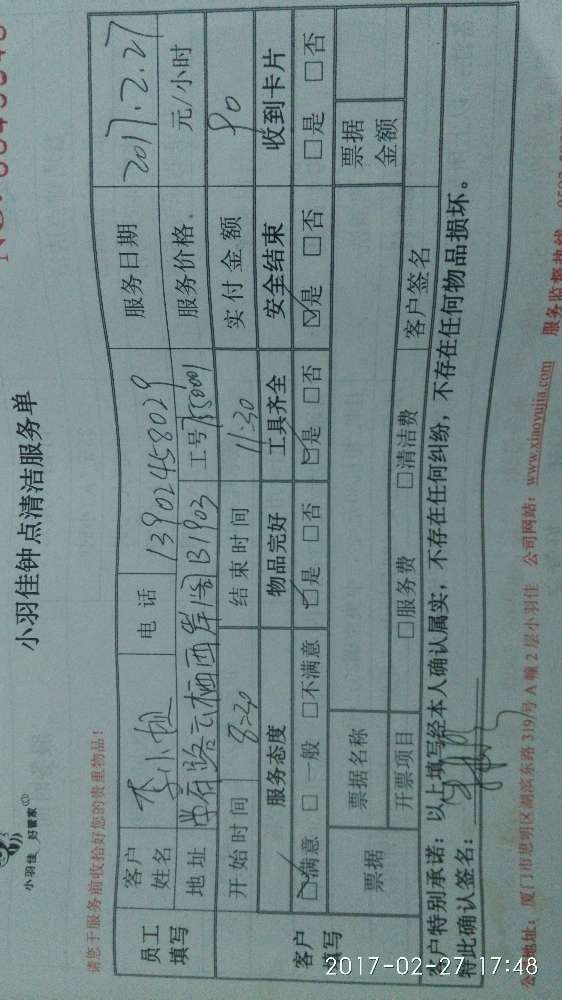 小羽佳 好管家
小羽佳钟点清洁服务单
请您于服务前收拾好您的贵重物品!
员工填写 客户姓名 李小姐 电话 13902458029 服务日期 2017.2.27
地址 B1903 工号 服务价格 元/小时
客户填写 开始时间 8:30 结束时间 11:30 实付金额 90
服务态度 物品完好 工具齐全 安全结束 收到卡片
☑满意 □一般 □不满意 ☑是 □否 ☑是 □否 ☑是 □否 □是 □否
票据 票据名称 票据金额
开票项目 □服务费 □清洁费 客户签名
客户特别承诺:以上填写经本人确认属实,不存在任何纠纷,不存在任何物品损坏。
特此确认签名:
公司地址:厦门市思明区湖滨东路319号A幢2层小羽佳 公司网站:www.xiaoyujia.com 服务监督热线
2017-02-27 17:48